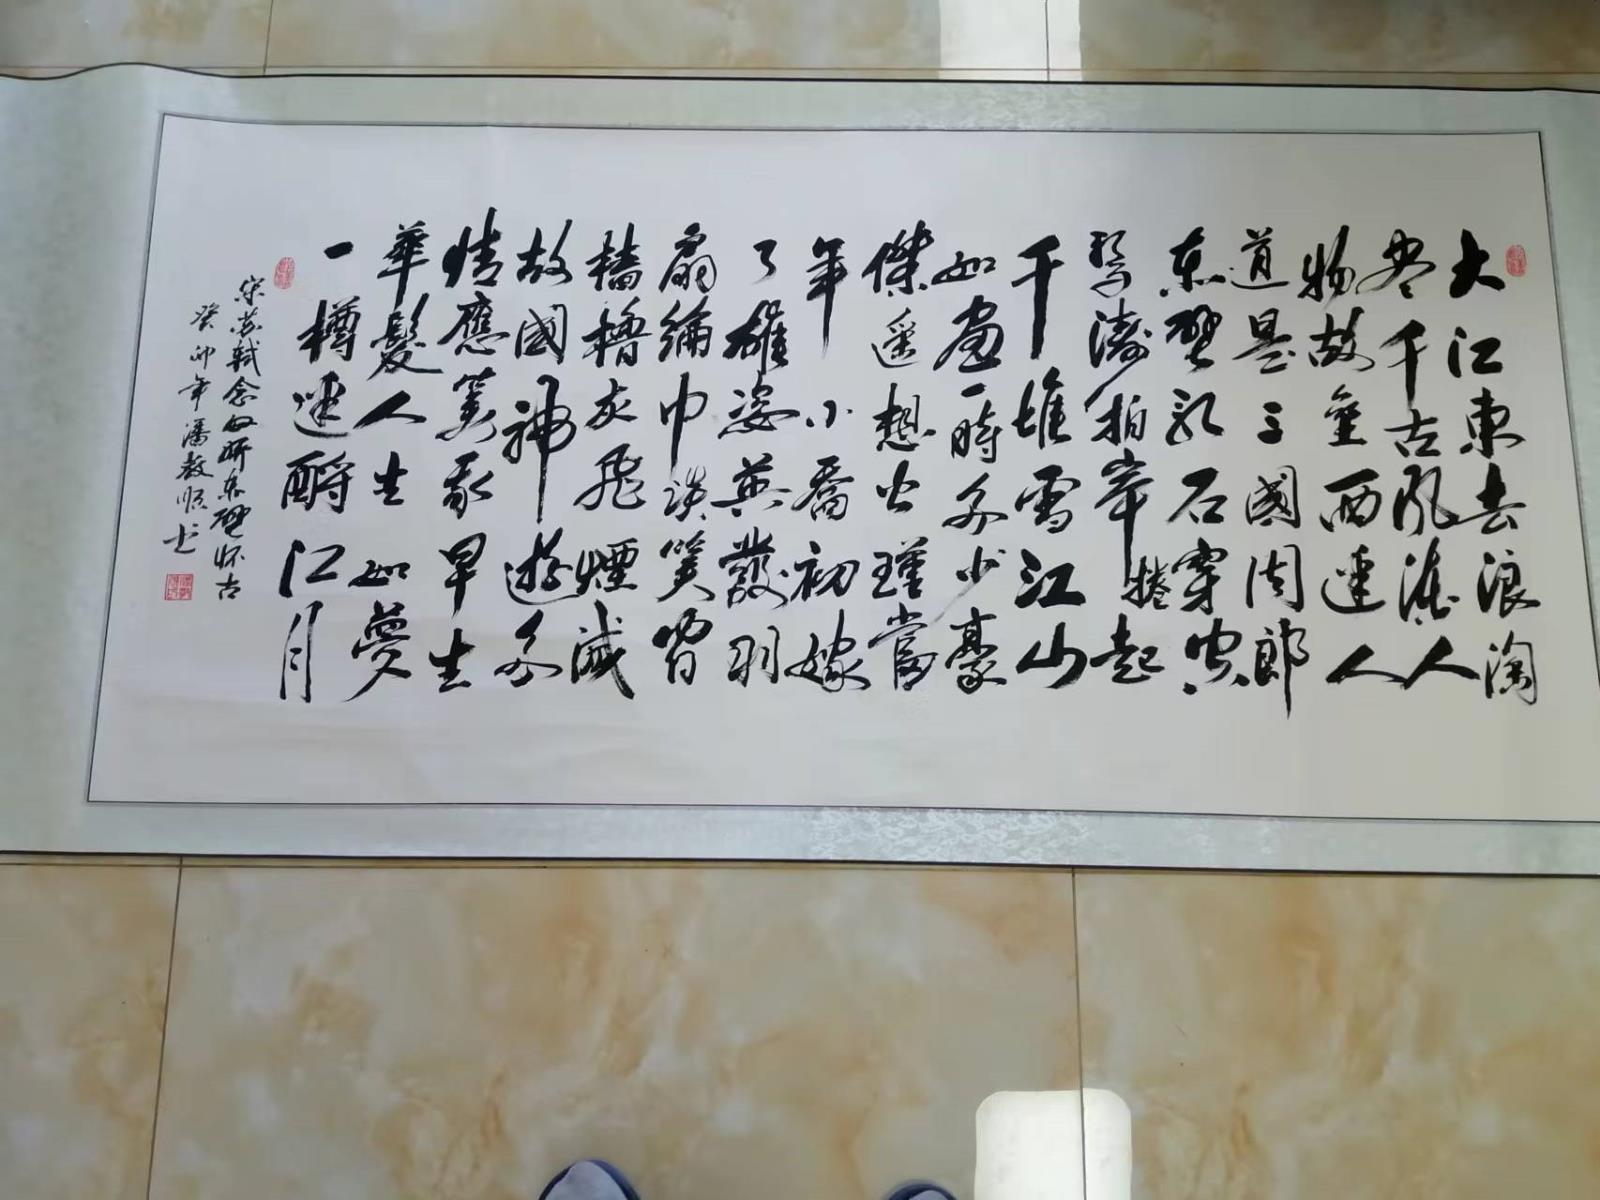 大江東去浪淘
尽千古風流人
物故壘西邊人
道是三國周郎
赤壁乱石穿空
驚濤拍岸捲起
千堆雪江山
如畫一時多少豪
傑遥想公瑾當
年小喬初嫁
了雄姿英發羽
扇綸巾談笑間
樯櫓灰飛煙滅
故國神遊多
情應笑我早生
華髮人生如夢
一樽還酹江月
宋苏軾念奴娇赤壁怀古
癸卯年潘教順书